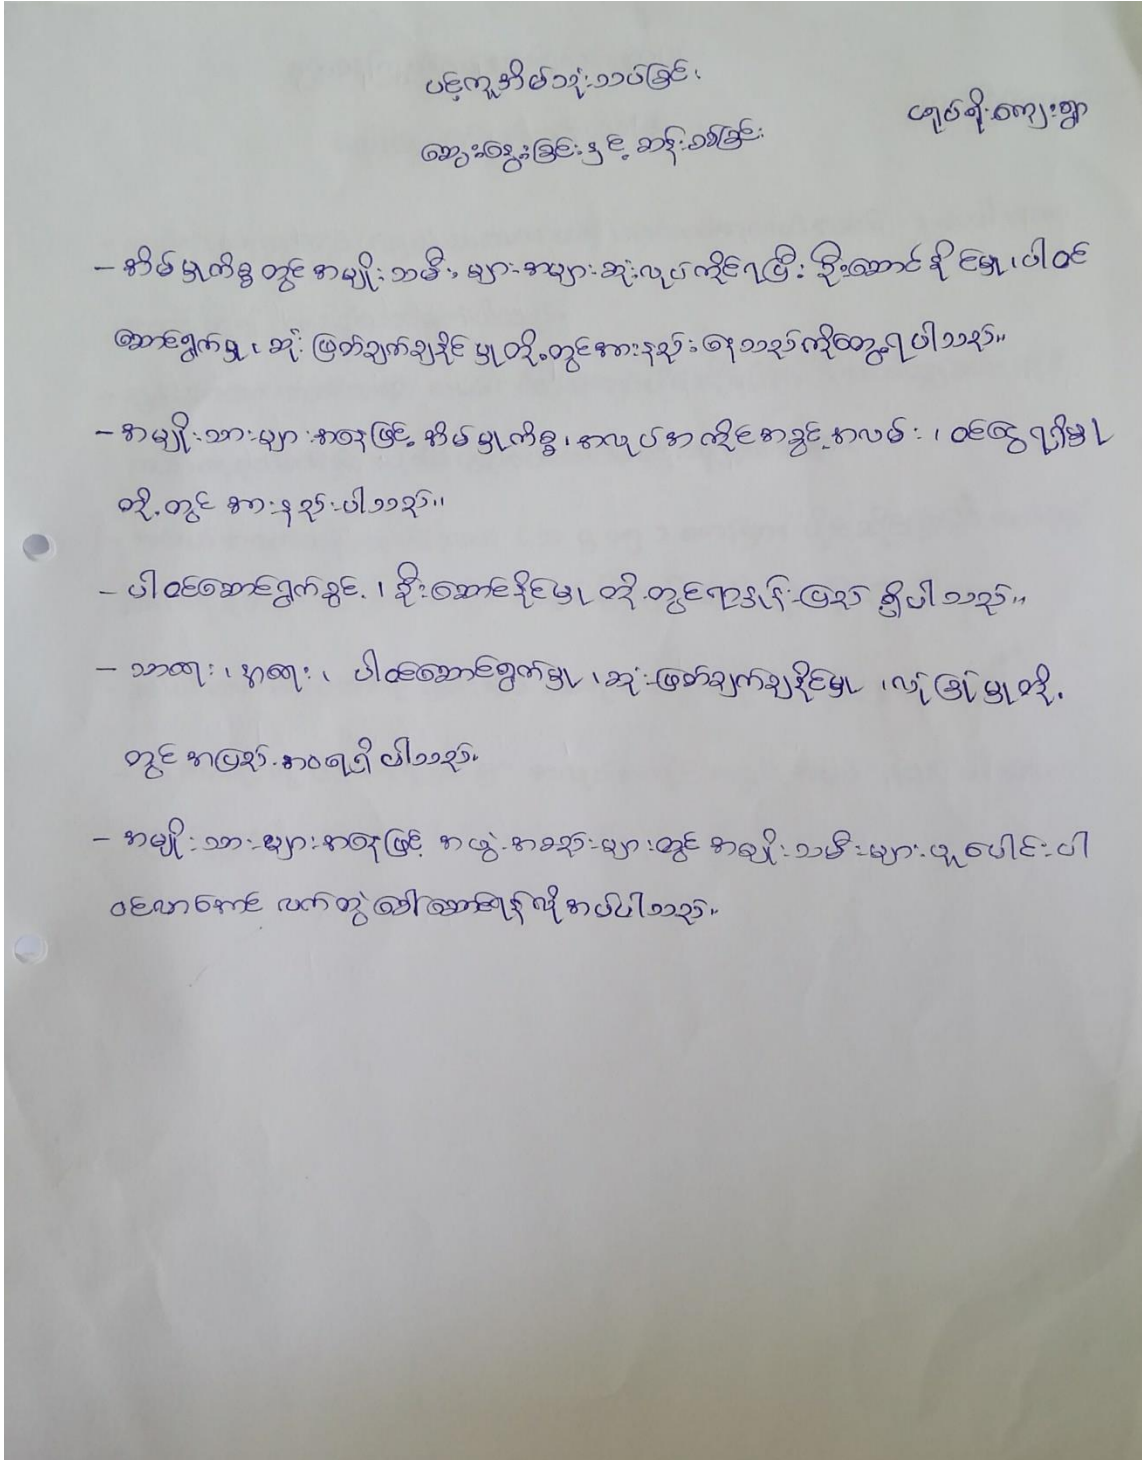 ပင့်ကူအိမ်သုံးသပ်ခြင်း၊
ဟုပ်စိုးကျေးရွာ
ဆွေးနွေးခြင်းနှင့် ဆန်းစစ်ခြင်း
- အိမ်မှုကိစ္စတွင် အမျိုးသမီးများ အများဆုံးလုပ်ကိုင်ရပြီး ဦးဆောင်နိုင်မှု၊ ပါဝင်
ဆောင်ရွက်မှု၊ ဆုံးဖြတ်ချက်ချနိုင်မှုတို့တွင် အားနည်းနေသည်ကိုတွေ့ရပါသည်။
- အမျိုးသားများအနေဖြင့် အိမ်မှုကိစ္စ၊ အလုပ်အကိုင်အခွင့်အလမ်း၊ ဝင်ငွေရရှိမှု
တို့တွင် အားနည်းပါသည်။
- ပါဝင်ဆောင်ရွက်ခွင့်၊ ဦးဆောင်နိုင်မှုတို့တွင်ရာနှုန်းပြည့် ရှိပါသည်။
- သာရေး၊ နာရေး၊ ပါဝင်ဆောင်ရွက်မှု၊ ဆုံးဖြတ်ချက်ချနိုင်မှု၊ လုံခြုံမှုတို့
တွင် အပြည့်အဝရရှိပါသည်။
- အမျိုးသားများအနေဖြင့် အဖွဲ့အစည်းများတွင် အမျိုးသမီးများပူးပေါင်းပါ
ဝင်လာအောင် လက်တွဲခေါ်ဆောင်ရန်လိုအပ်ပါသည်။